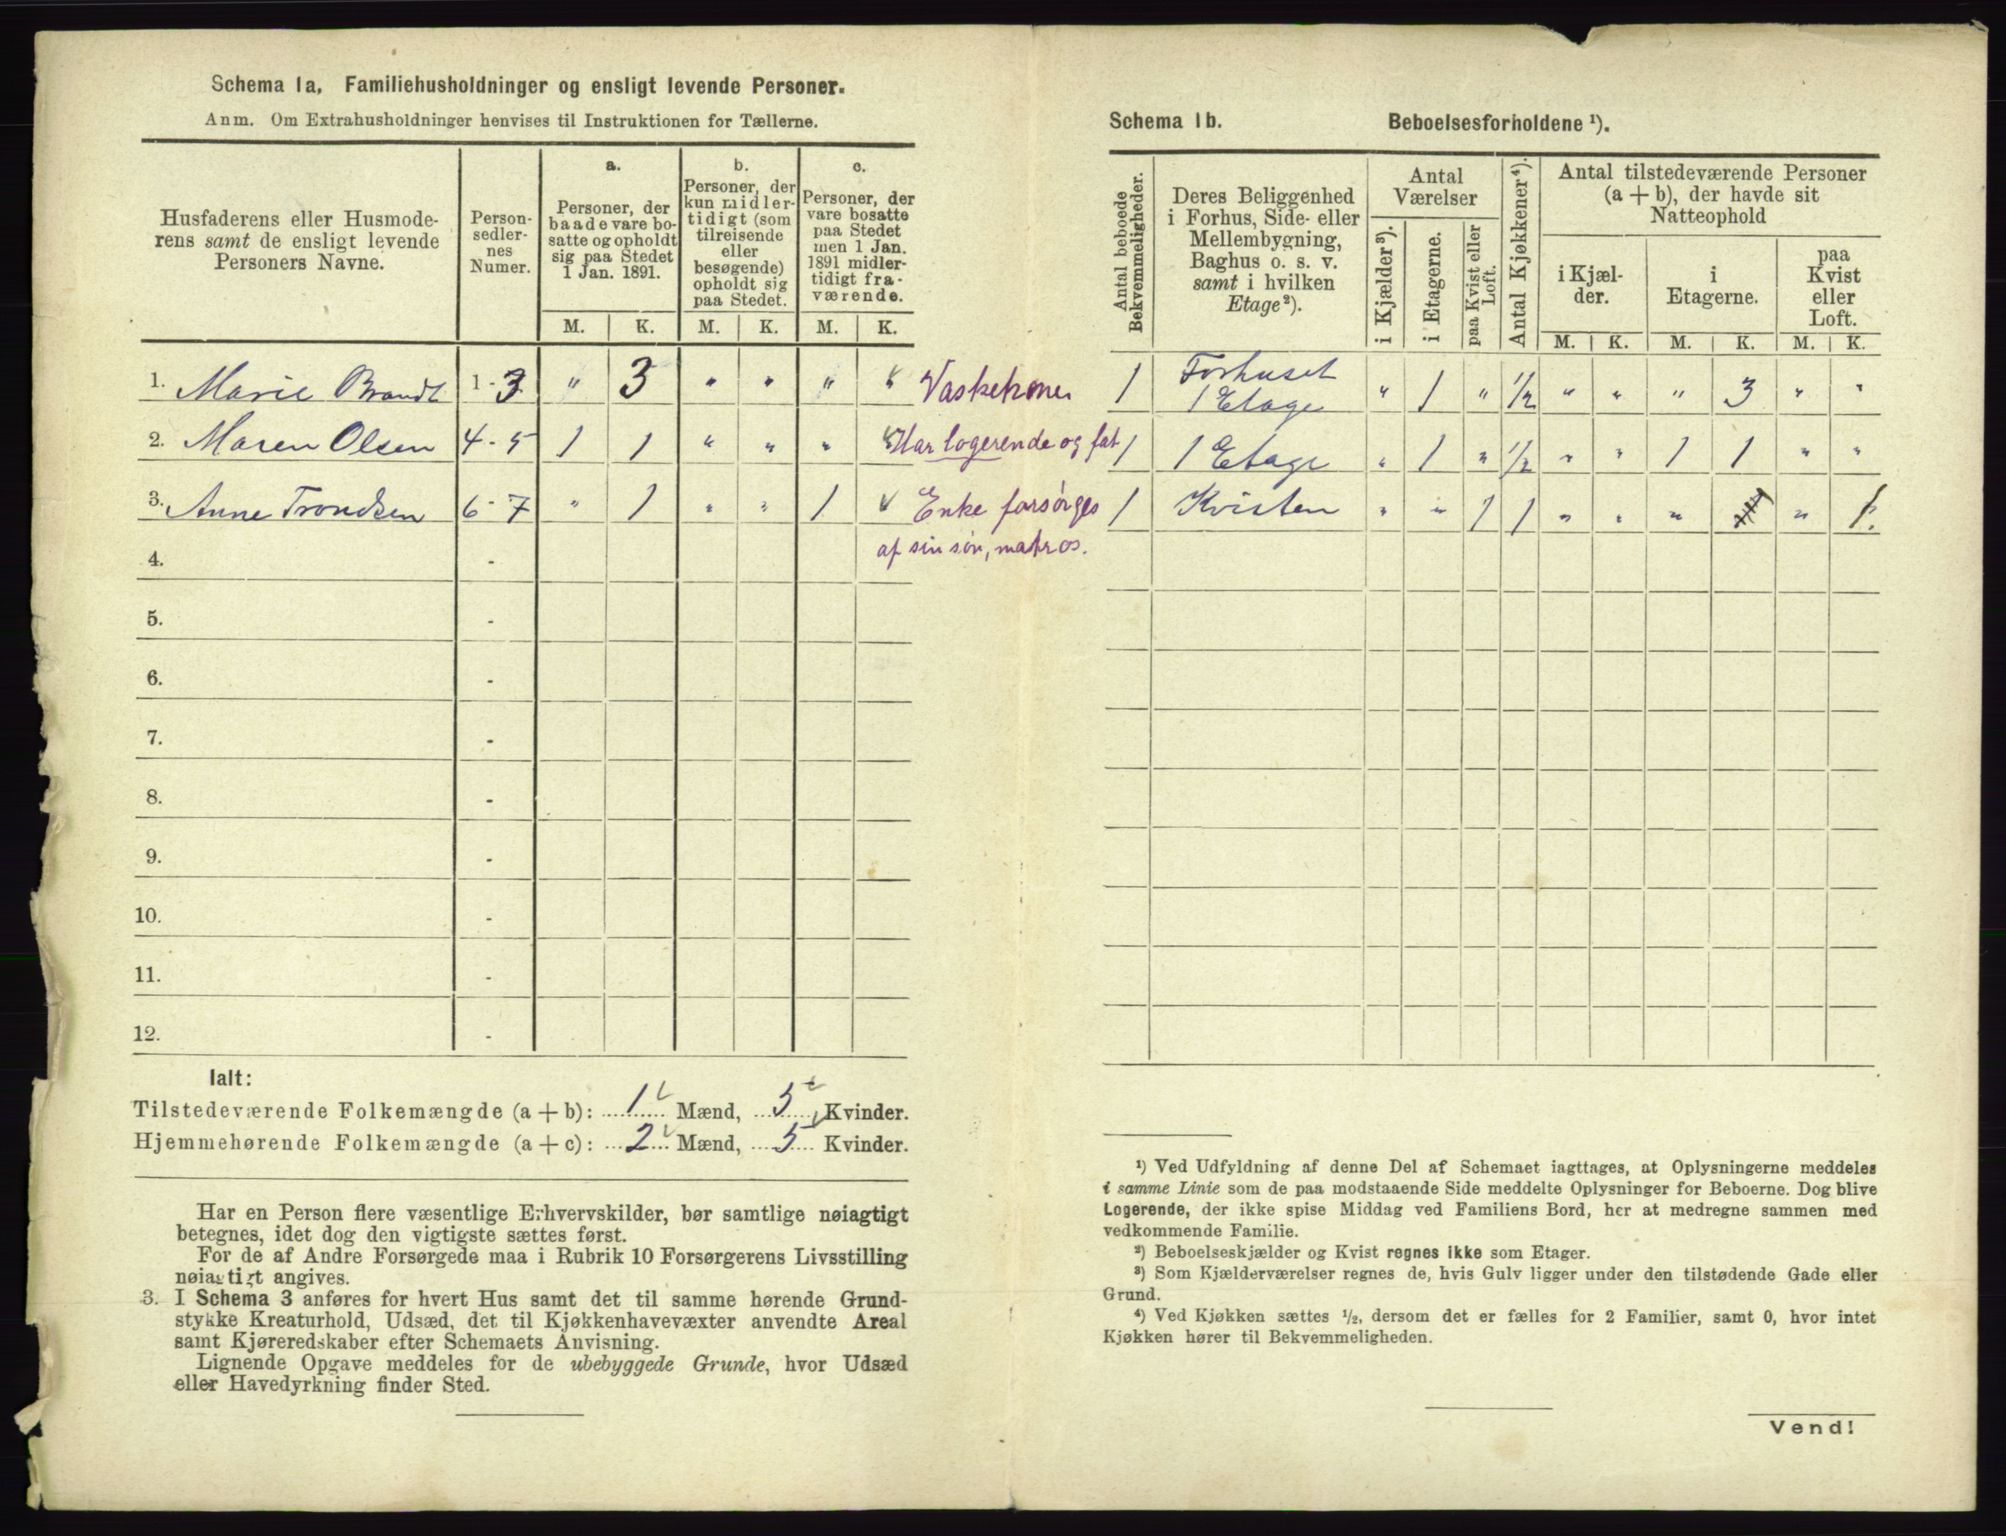 Schema 1a. Familiehusholdninger og ensligt levende Personer.
Anm. Om Extrahusholdninger henvises til Instruktionen for Tællerne.
Husfaderens eller Husmode-
rens samt de ensligt levende
Personers Navne.
Person-
sedler-
nes
Numer.
a.
Personer, der
baade vare bo-
satte og opholdt
sig paa Stedet
1 Jan. 1891.
b.
Personer, der
kun midler-
tidigt (som
tilreisende
eller
besøgende)
opholdt sig
paa Stedet.
c.
Personer, der
vare bosatte
paa Stedet
men 1 Jan.
1891 midler-
tidigt fra-
værende.
M. K. M. K. M. K.
1. Marie Brandt 1 - 3 " 3 " " " " Vaskekone.
2. Maren Olsen 4 - 5 1 1 " " " " Har logerende og fat
3. Anne Trondsen 6 - 7 " 1 " " 1 Enke forsørges
af sin søn, matros.
4. -
5. -
6. -
7. -
8. -
9. -
10. -
11. -
12. -
Ialt:
Tilstedeværende Folkemængde (a + b): 1 Mænd, 5 Kvinder.
Hjemmehørende Folkemængde (a + c): 2 Mænd, 5 Kvinder.
Har en Person flere væsentlige Erhvervskilder, bør samtlige nøiagtigt
betegnes, idet dog den vigtigste sættes først.
For de af Andre Forsørgede maa i Rubrik 10 Forsørgerens Livsstilling
nøiagtigt angives.
3. I Schema 3 anføres for hvert Hus samt det til samme hørende Grund-
stykke Kreaturhold, Udsæd, det til Kjøkkenhavevæxter anvendte Areal
samt Kjøreredskaber efter Schemaets Anvisning.
Lignende Opgave meddeles for de ubebyggede Grunde, hvor Udsæd
eller Havedyrkning finder Sted.
Schema 1b. Beboelsesforholdene ¹).
Antal beboede
Bekvemmeligheder.
Deres Beliggenhed
i Forhus, Side- eller
Mellembygning,
Baghus o. s. v.
samt i hvilken
Etage²).
Antal
Værelser
i Kjælder³).
i Etagerne.
paa Kvist eller
Loft.
Antal Kjøkkener⁴).
Antal tilstedeværende Personer
(a + b), der havde sit
Natteophold
i Kjæl-
der.
i
Etagerne.
paa
Kvist
eller
Loft.
M. K. M. K. M. K.
1 Forhuset
1 Etage " 1 " 1/2 " " " 3 " "
1 1 Etage " 1 " 1/2 " " 1 1 " "
1 Kvisten " " 1 1 " " " " 1.
¹) Ved Udfyldning af denne Del af Schemaet iagttages, at Oplysningerne meddeles
i samme Linie som de paa modstaaende Side meddelte Oplysninger for Beboerne. Dog blive
Logerende, der ikke spise Middag ved Familiens Bord, her at medregne sammen med
vedkommende Familie.
²) Beboelseskjælder og Kvist regnes ikke som Etager.
³) Som Kjælderværelser regnes de, hvis Gulv ligger under den tilstødende Gade eller
Grund.
⁴) Ved Kjøkken sættes ½, dersom det er fælles for 2 Familier, samt 0, hvor intet
Kjøkken hører til Bekvemmeligheden.
Vend!